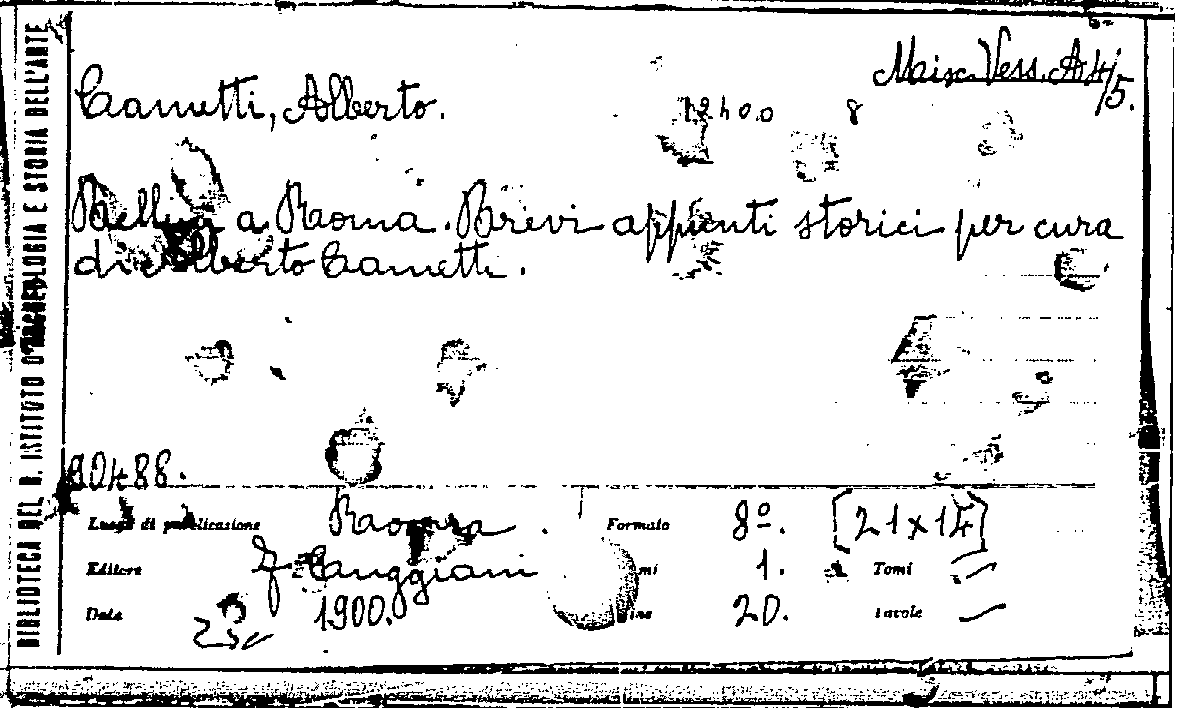 BIBLIOTECA DEL R. ISTITUTO D'ARCHEOLOGIA E STORIA DELL'ARTE
Misc. Vess. A 4/5.
Cametti, Alberto.
12400 8
Bellini a Roma. Brevi appunti storici per cura
di Alberto Cametti.
90488.
Luogo di pubblicazione Roma. Formato 8º. [21x14]
Editore Cuggiani 1. Tomi —
Data 1900. 20. Tavole —